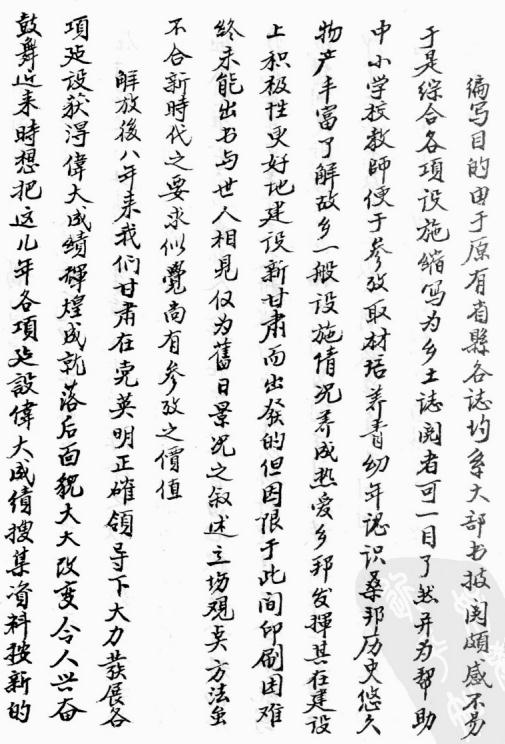 编写目的由于原有省縣各誌均系大部书披阅頗感不易
于是综合各項设施缩写为乡土誌阅者可一目了然并为帮助
中小学校教師便于参攷取材培养青幼年认识桑邦历史悠久
物产丰富了解故乡一般设施情况养成热爱乡邦发揮其在建設
上积极性更好地建设新甘肃而出发的但因限于此间印刷困难
终未能出书与世人相見仅为舊日景况之叙述立场观点方法虽
不合新時代之要求似覺尚有参攷之價值
解放後八年来我们甘肃在党英明正確领导下大力發展各
項建设获得偉大成績輝煌成就落后面貌大大改变令人兴奋
鼓舞近来時想把这几年各項建設偉大成績搜集資料按新的